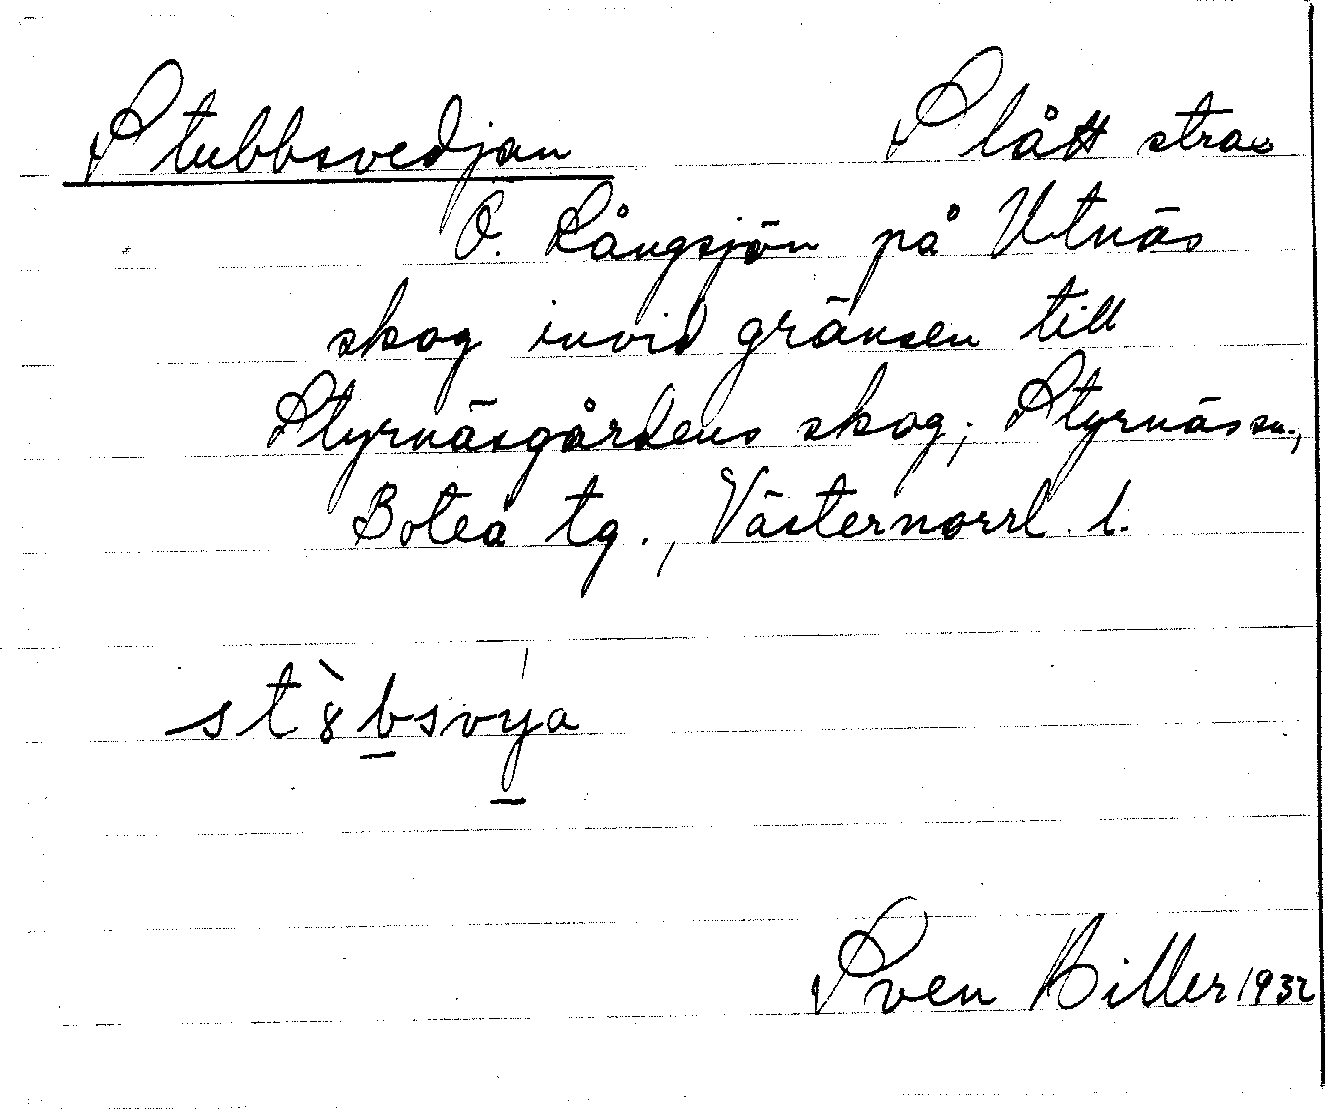 Stubbsvedjan Slått strax
Ö. Långsjön på Utnäs
skog invid gränsen till
Styrnäsgårdens skog; Styrnäs sn.,
Boteå tg., Västernorrl. l.
st`8bsvya
Sven Hiller 1932